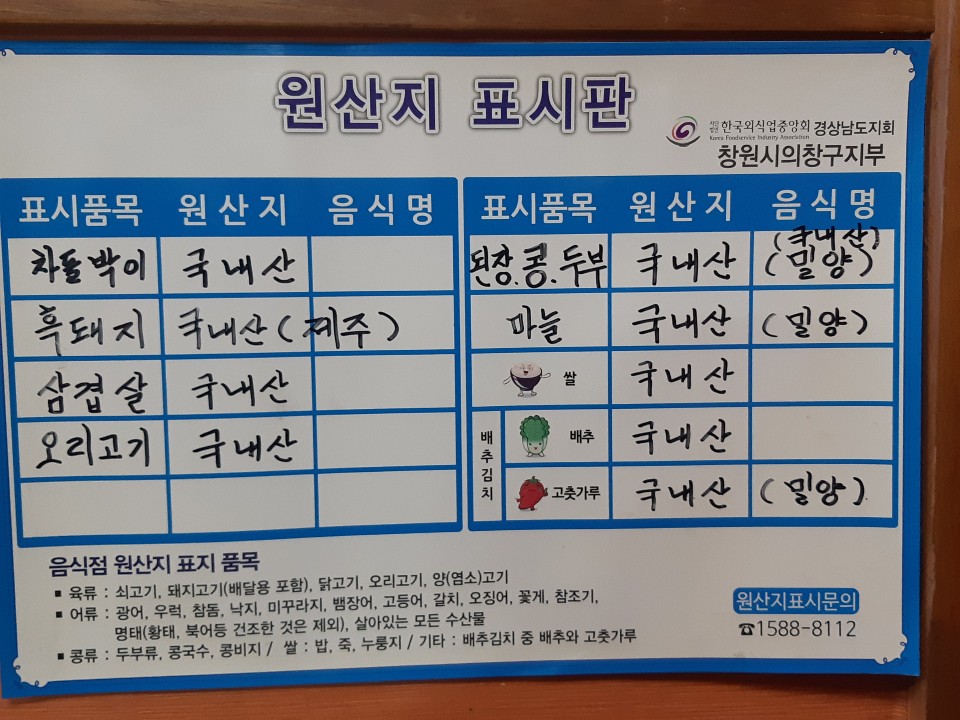 원산지 표시판
사단법인 한국외식업중앙회 경상남도지회
Korea Foodservice Industry Association
창원시의창구지부
표시품목 원산지 음식명
차돌박이 국내산
흑돼지 국내산 (제주)
삼겹살 국내산
오리고기 국내산
표시품목 원산지 음식명
된장.콩.두부 국내산 (국내산) (밀양)
마늘 국내산 (밀양)
쌀 국내산
배추김치 배추 국내산
고춧가루 국내산 (밀양)
음식점 원산지 표지 품목
▪ 육류 : 쇠고기, 돼지고기(배달용 포함), 닭고기, 오리고기, 양(염소)고기
▪ 어류 : 광어, 우럭, 참돔, 낙지, 미꾸라지, 뱀장어, 고등어, 갈치, 오징어, 꽃게, 참조기,
명태(황태, 북어등 건조한 것은 제외), 살아있는 모든 수산물
▪ 콩류 : 두부류, 콩국수, 콩비지 / 쌀 : 밥, 죽, 누룽지 / 기타 : 배추김치 중 배추와 고춧가루
원산지표시문의
☎1588-8112